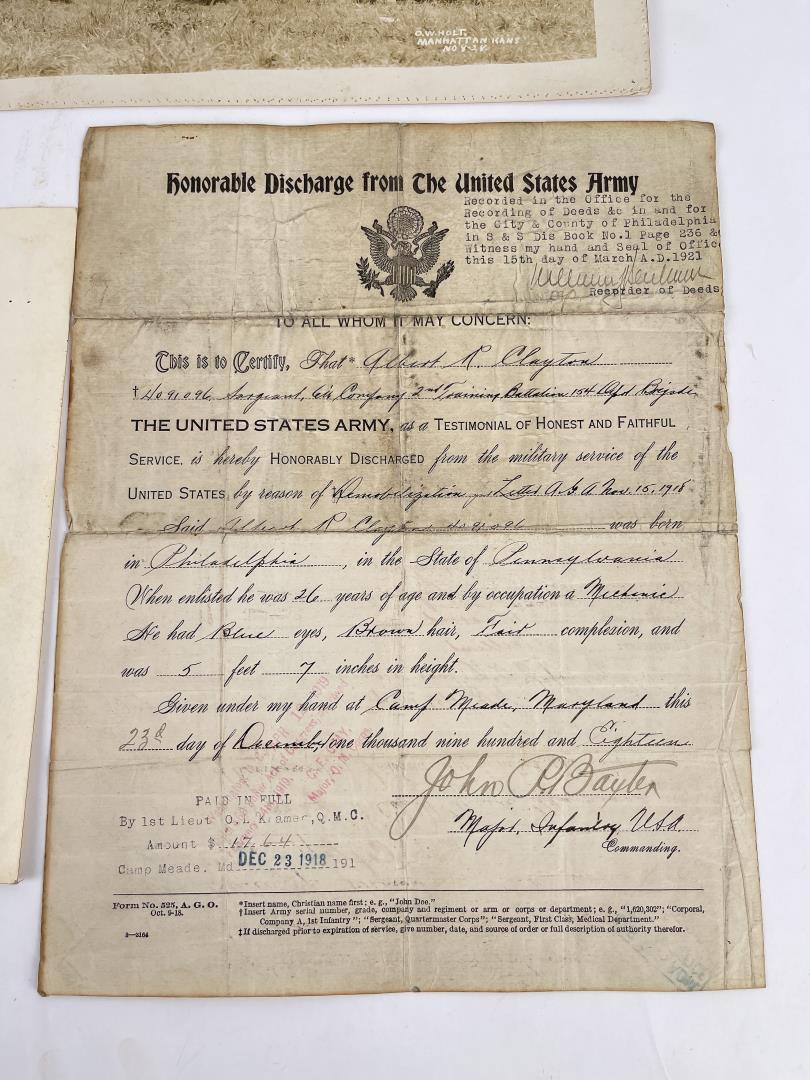 O.W. HOLT.
MANHATTAN KANS
Honorable Discharge from The United States Army
Recorded in the Office for the
Recording of Deeds &c in and for
the City & County of Philadelphia
in S & S Dis Book No.1 Page 236 &c
Witness my hand and Seal of Office
this 15th day of March A.D.1921
Recorder of Deeds
TO ALL WHOM IT MAY CONCERN:
This is to Certify, That* Albert R. Clayton
† 4091096 Sargeant, Company 2nd Training Battalion 154 Brigade
THE UNITED STATES ARMY, as a TESTIMONIAL OF HONEST AND FAITHFUL
SERVICE, is hereby HONORABLY DISCHARGED from the military service of the
UNITED STATES by reason of Demobilization Letter A.G.A Nov. 15, 1918
Said Albert R Clayton 4091096 was born
in Philadelphia, in the State of Pennsylvania
When enlisted he was 26 years of age and by occupation a
He had Blue eyes, Brown hair, Fair complexion, and
was 5 feet 7 inches in height.
Given under my hand at Camp Meade, Maryland this
23d day of December one thousand nine hundred and Eighteen
John R Baxter
Major, Infantry USA
Commanding.
PAID IN FULL
By 1st Lieut O.L Kramer, Q.M.C.
Amount $
Camp Meade. Md DEC 23 1918 191
Form No. 525, A. G. O.
Oct. 9-18.
3—3164
*Insert name, Christian name first; e. g., "John Doe."
†Insert Army serial number, grade, company and regiment or arm or corps or department; e. g., "1,620,302"; "Corporal,
Company A, 1st Infantry"; "Sergeant, Quartermaster Corps"; "Sergeant, First Class, Medical Department."
‡If discharged prior to expiration of service, give number, date, and source of order or full description of authority therefor.